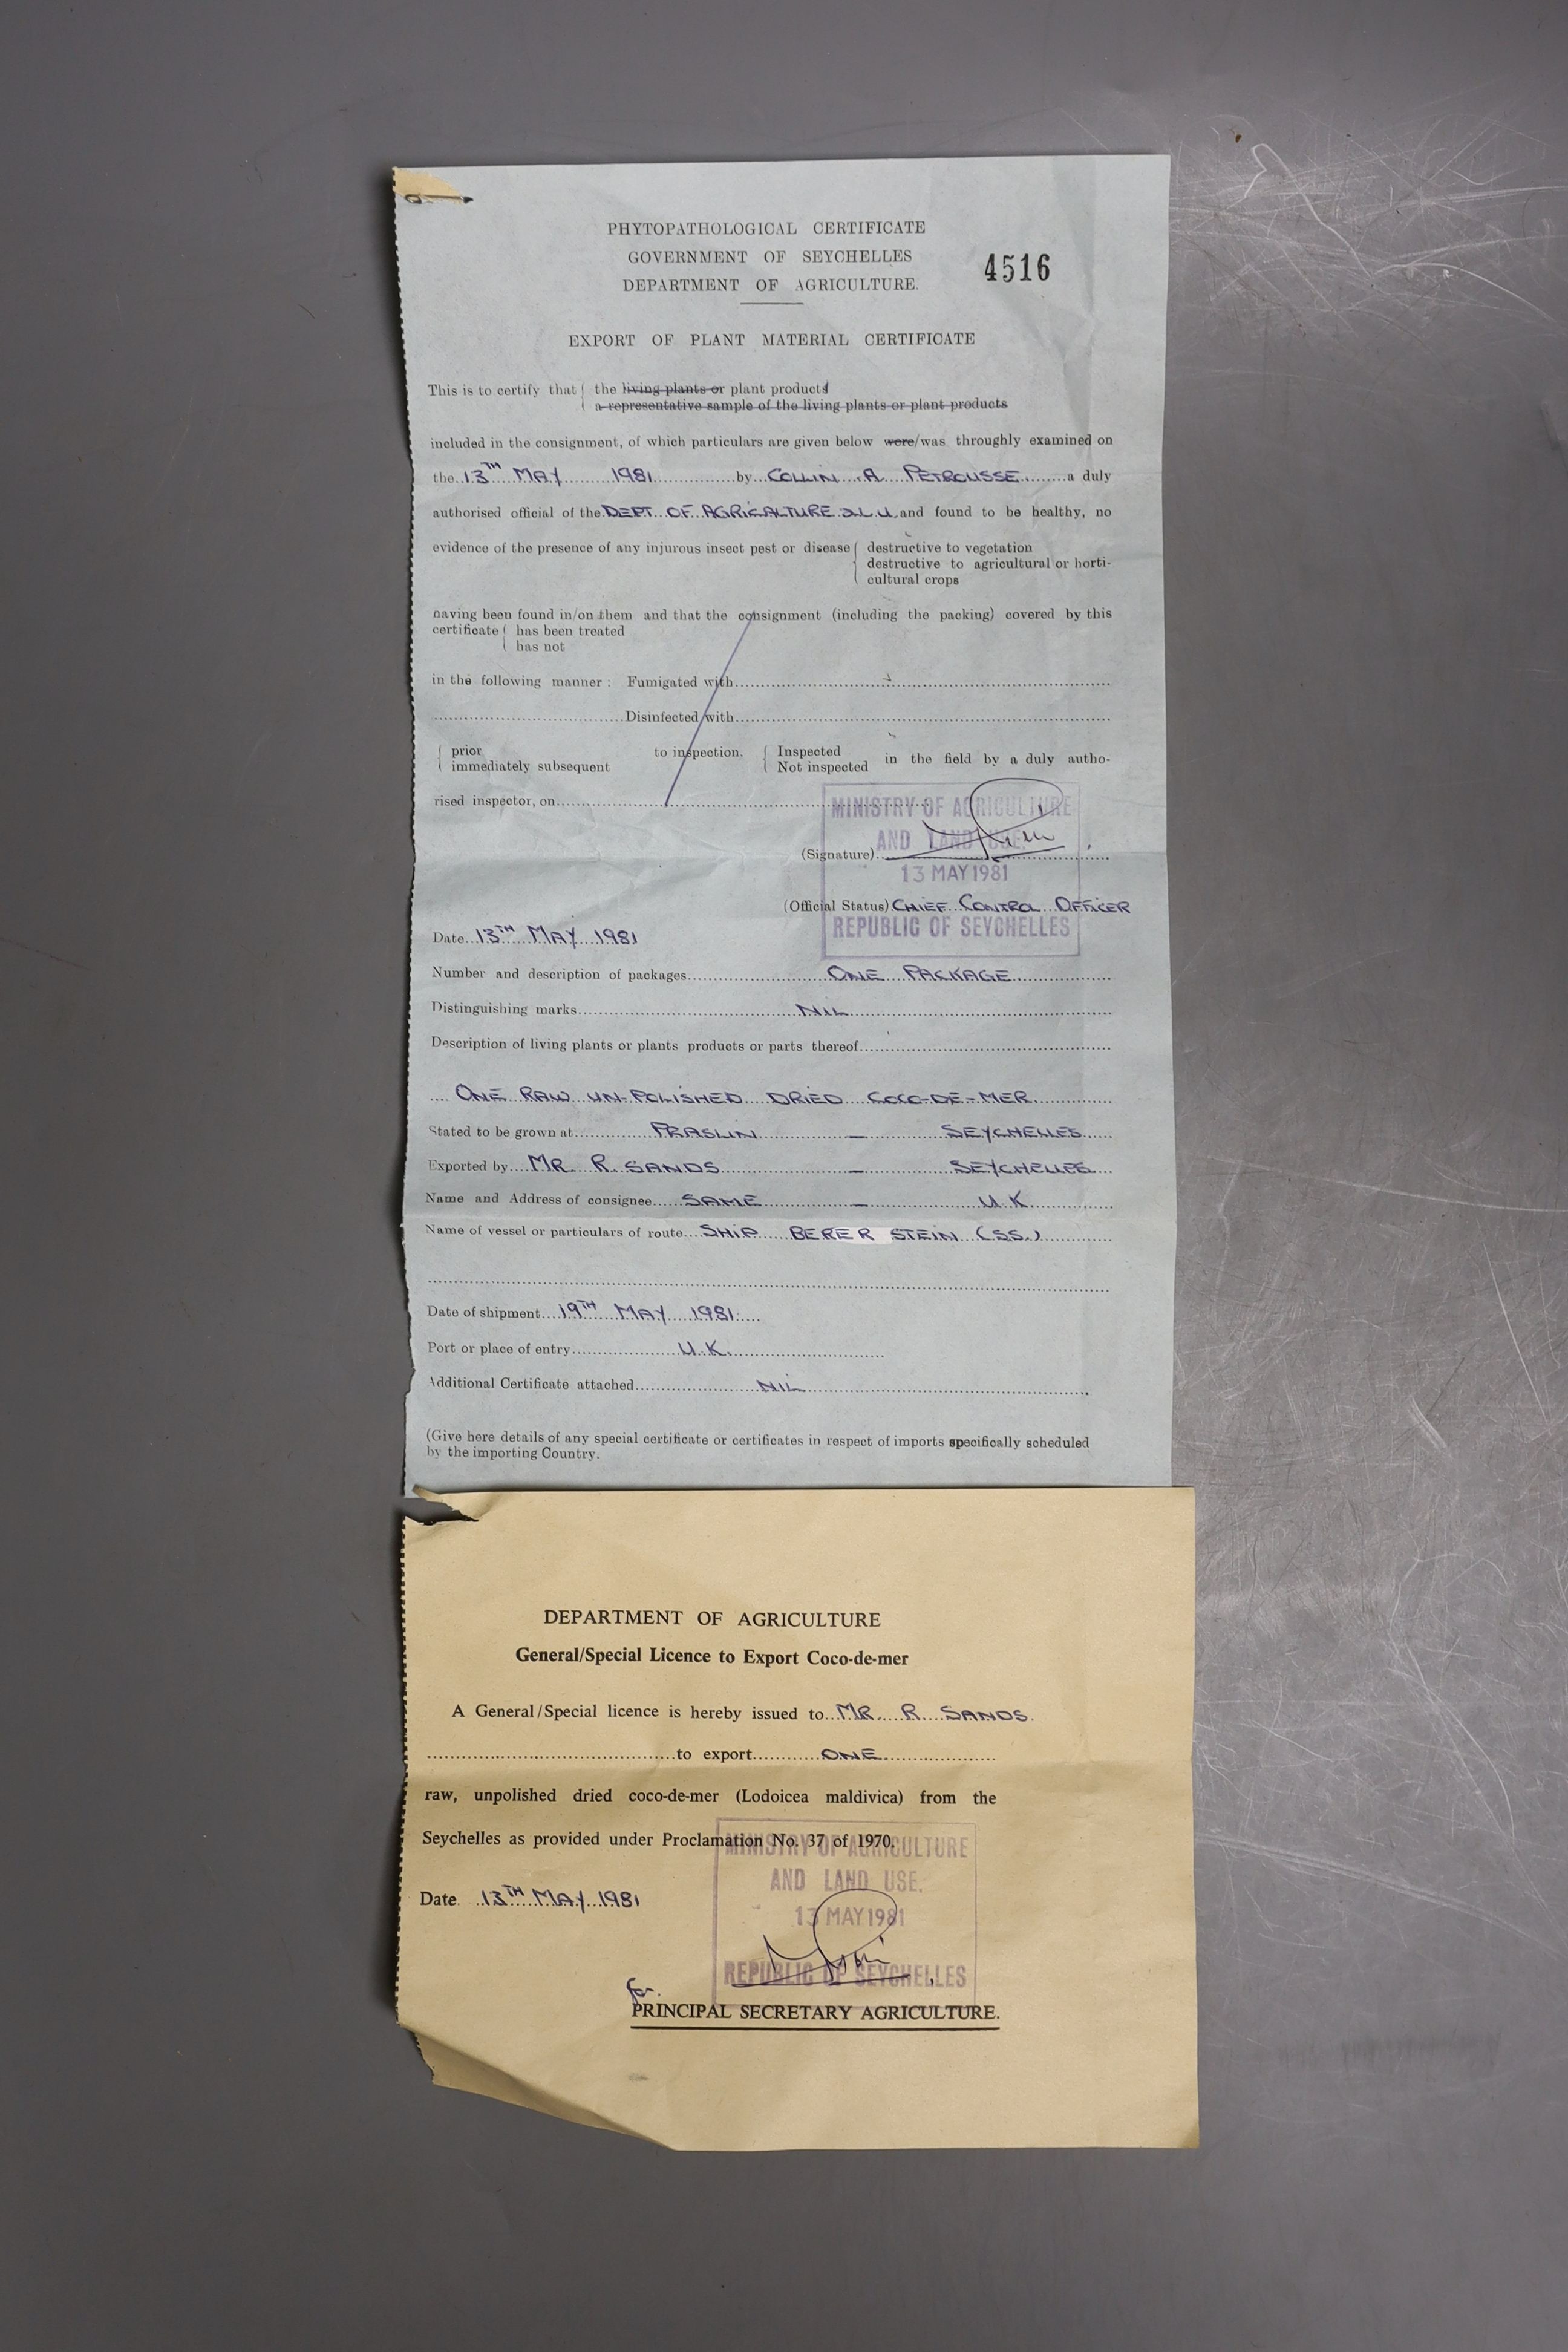 PHYTOPATHOLOGICAL CERTIFICATE
GOVERNMENT OF SEYCHELLES
4516
DEPARTMENT OF AGRICULTURE.
EXPORT OF PLANT MATERIAL CERTIFICATE
This is to certify that { the living plants or plant products
a representative sample of the living plants or plant products
included in the consignment, of which particulars are given below were/was throughly examined on
the 13TH MAY 1981 by COLLIN .A. PETROUSSE a duly
authorised official of the DEPT. OF AGRICALTURE & L.U. and found to be healthy, no
evidence of the presence of any injurous insect pest or disease { destructive to vegetation
destructive to agricultural or horti-
cultural crops
having been found in/on them and that the consignment (including the packing) covered by this
certificate { has been treated
has not
in the following manner : Fumigated with
Disinfected with
{ prior
immediately subsequent to inspection. { Inspected
Not inspected in the field by a duly autho-
rised inspector, on
MINISTRY OF AGRICULTURE
AND LAND USE.
(Signature)
13 MAY 1981
(Official Status) CHIEF CONTROL OFFICER
REPUBLIC OF SEYCHELLES
Date 13TH MAY 1981
Number and description of packages ONE PACKAGE
Distinguishing marks NIL
Description of living plants or plants products or parts thereof
ONE RAW UN-POLISHED DRIED COCO-DE-MER
Stated to be grown at PRASLIN — SEYCHELLES
Exported by MR R. SANDS — SEYCHELLES
Name and Address of consignee SAME — U.K
Name of vessel or particulars of route SHIP BERER STEIN (SS.)
Date of shipment 19TH MAY 1981
Port or place of entry U.K.
Additional Certificate attached NIL
(Give here details of any special certificate or certificates in respect of imports specifically scheduled
by the importing Country.
DEPARTMENT OF AGRICULTURE
General/Special Licence to Export Coco-de-mer
A General/Special licence is hereby issued to MR. R. SANDS.
to export ONE
raw, unpolished dried coco-de-mer (Lodoicea maldivica) from the
Seychelles as provided under Proclamation No. 37 of 1970.
MINISTRY OF AGRICULTURE
AND LAND USE.
Date 13TH MAY 1981
13 MAY 1981
REPUBLIC OF SEYCHELLES
for.
PRINCIPAL SECRETARY AGRICULTURE.